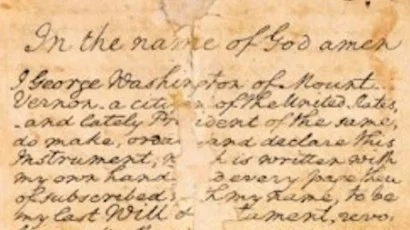 In the name of God amen
I George Washington of Mount
Vernon a citizen of the United States,
and lately President of the same,
do make, orda and declare this
Instrument, w h is written with
my own hand d every page
of subscribed th my name, to be
my last Will & tament, revo